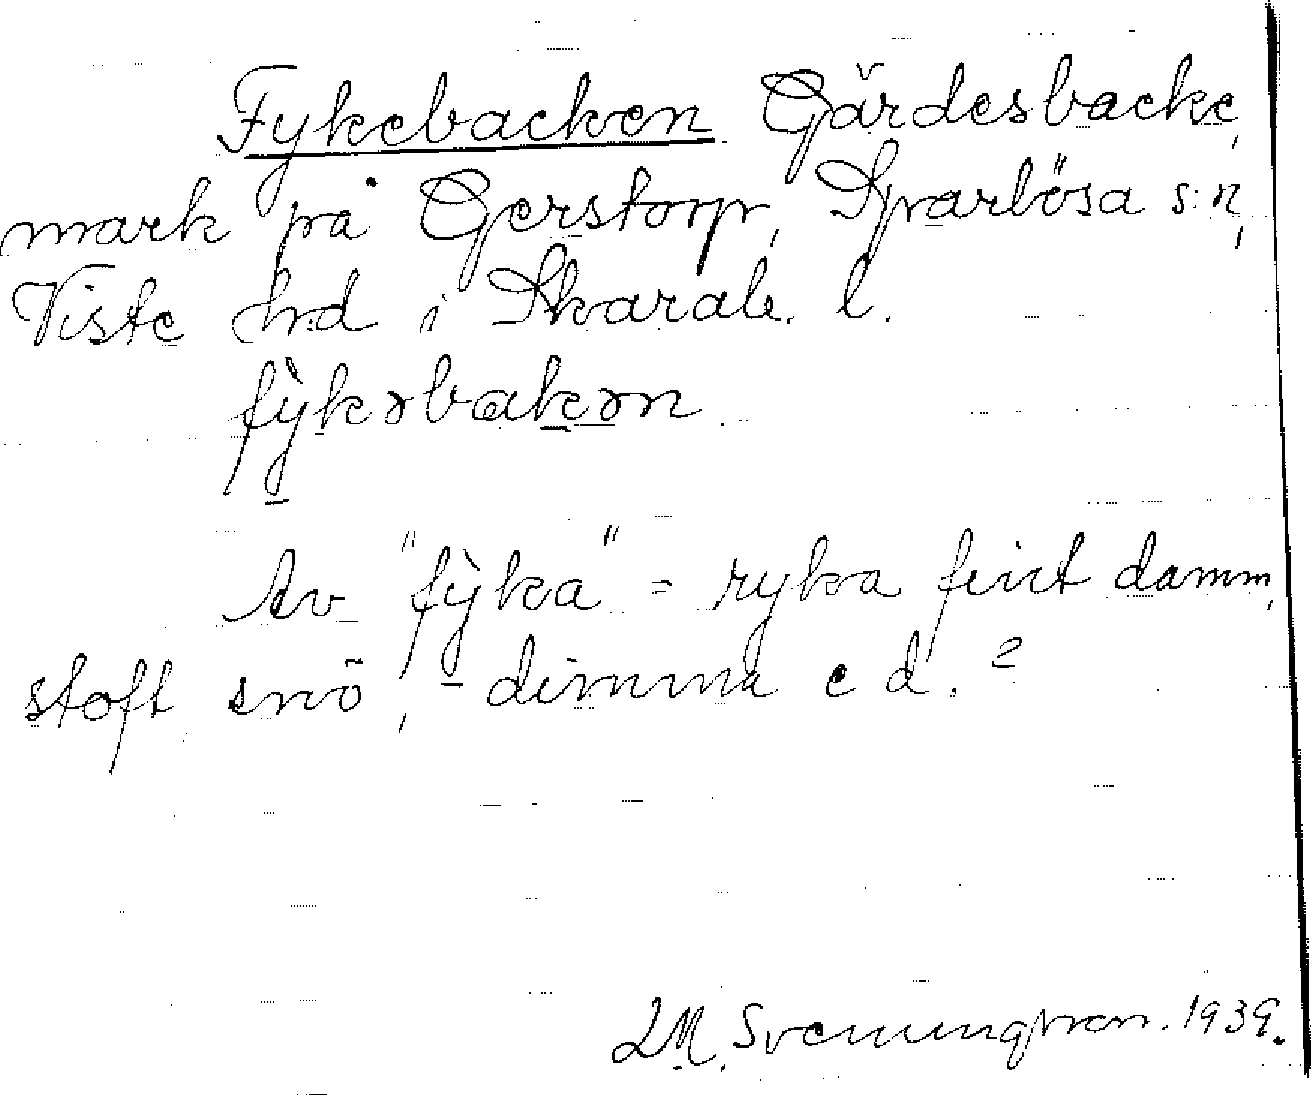 Fykebacken Gärdesbacke,
mark på Gerstorp, Sparlösa s:n,
Viste hd i Skarab. l.
fỳkəbakən
Av "fỳka" = ryka fint damm,
stoft snö, dimma e d. ?
LM. Svenungsson. 1939.